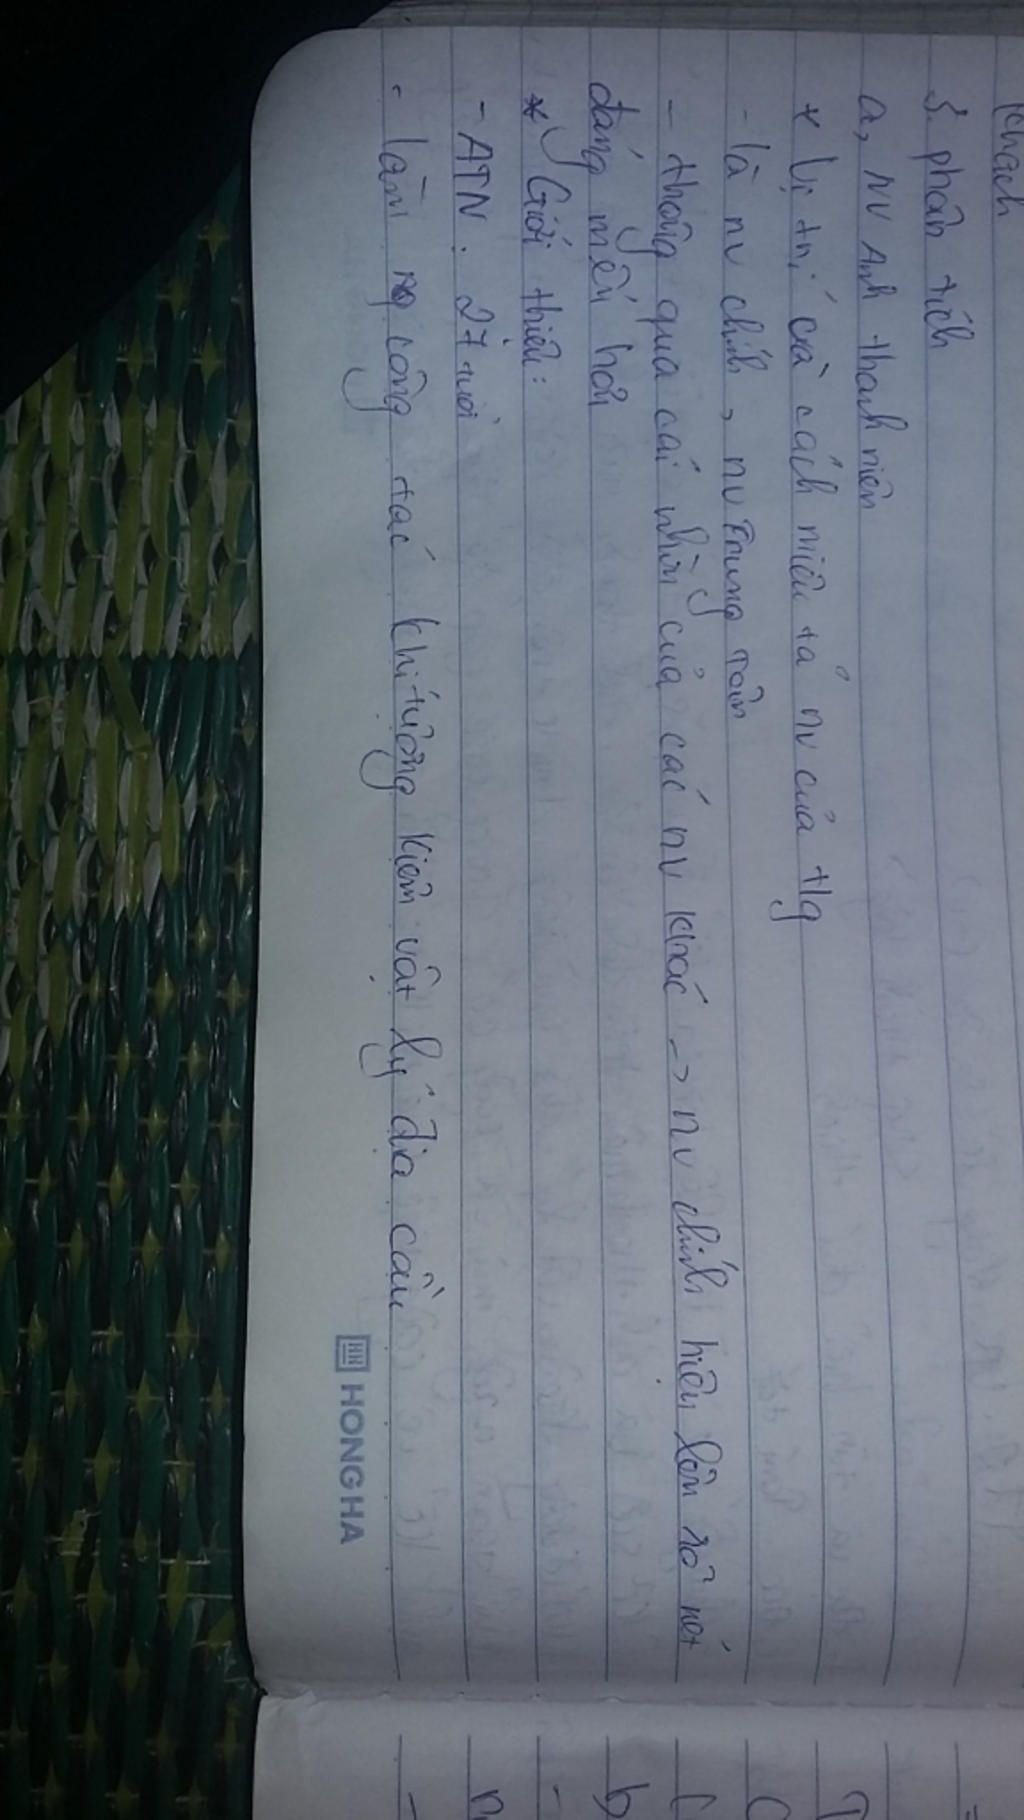 khách
3. phân tích
a, NV Anh thanh niên
* Vị trí và cách miêu tả nv của tlg
- là nv chính, nv trung tâm
- thông qua cái nhìn của các nv khác -> nv chính hiện lên rõ nét
đáng mến hơn
* Giới thiệu:
- ATN: 27 tuổi
- làm công tác khí tượng kiêm vật lý địa cầu
HH HONG HA